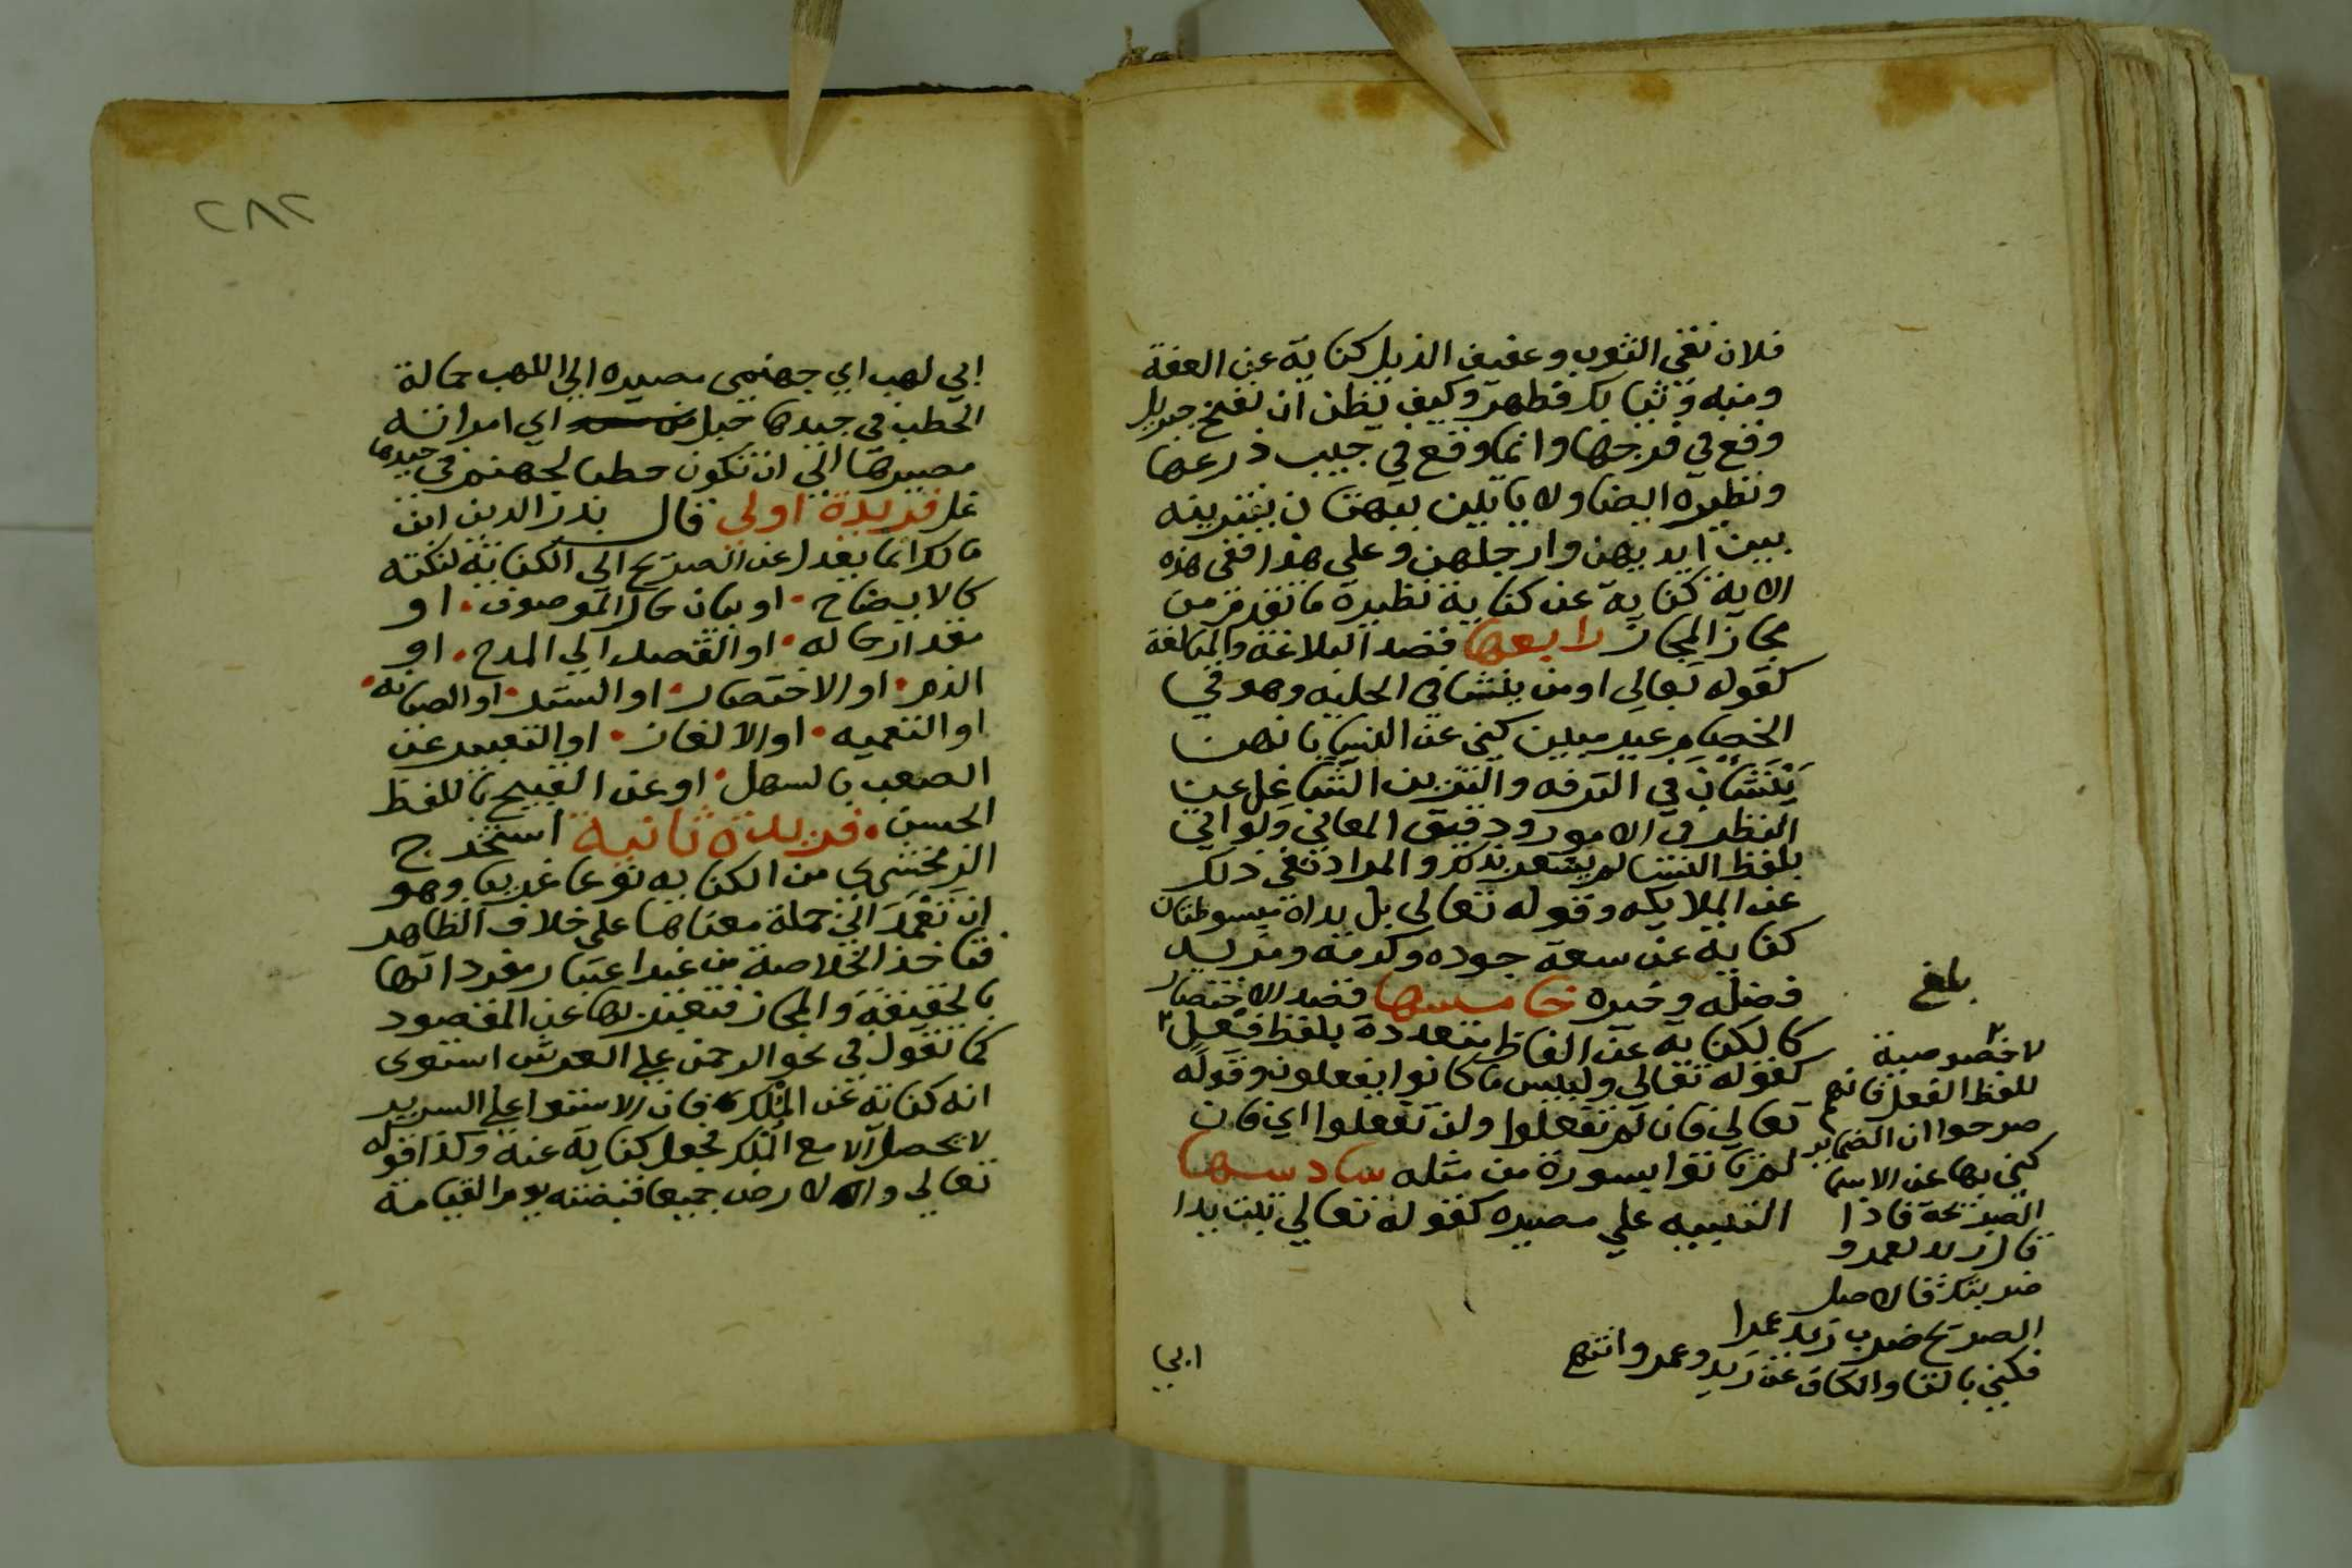 فلان نقي الثوب وعفيف الذيل كناية عن العفة
ومنه وثيابك فطهر وكيف يظن ان نفخ جبريل
وقع في فرجها وانما وقع في جيب درعها
ونظيره ايضا ولا ياتين ببهتان يفترينه
بين ايديهن وارجلهن وعلي هذا ففي هذه
الاية كناية عن كناية نظيره ما تقدم من
مجاز المجاز رابعها قصد البلاغة والمبالغة
كقوله تعالي اومن ينشا في الحلية وهو في
الخصام غير مبين كني عن النسا بانهن
يَنْشَان في الترفه والتزين الشاغل عن
النظر في الامور ودقيق المعاني ولو اتي
بلفظ النسا لم يشعر بذلك والمراد نفي ذلك
عن الملايكه وقوله تعالي بل يداه مبسوطتان
كناية عن سعة جوده وكرمه ومزيد
فضله وخيره خامسها قصد الاختصار
كالكناية عن الفاظ متعددة بلفظ فعل ٢
كقوله تعالي ولبيس ما كانوا يفعلون وقوله
تعالي فان لم تفعلوا ولن تفعلوا اي فان
لم تاتوا بسورة من مثله سادسها
التنبيه علي مصيره كقوله تعالي تبت يدا
ابي
بلغ
٢
لا خصوصية
للفظ الفعل فانهم
صرحوا ان الضماير
كني بها عن الاسما
الصريحة فاذا
قال زيد لعمرو
ضربتك فالاصل
الصريح ضرب زيد عمرا
فكني بالتا والكاف عن زيد وعمرو انتهي
٢٨٢
ابي لهب اي جهنمي مصيره الي اللهب حمالة
الحطب في جيدها حبل اي امراته
مصيرها الي ان تكون حطبا لجهنم في جيدها
غل فريدة اولي قال بدر الدين ابن
مالك انما يعدل عن الصريح الي الكناية لنكتة
كالايضاح • او بيان حال الموصوف • او
مقدار حاله • او القصد الي المدح • او
الذم • او الاختصار • او الستر • او الصيانه •
او التعميه • او الالغاز • او التعبير عن
الصعب بالسهل • او عن القبيح باللفظ
الحسن • فريدة ثانية استخرج
الزمخشري من الكنايه نوعا غريبا وهو
ان تعمد الي جملة معناها علي خلاف الظاهر
فتاخذ الخلاصة من غير اعتبار مفرداتها
بالحقيقة والمجاز فتعبر بها عن المقصود
كما تقول في نحو الرحمن علي العرش استوي
انه كناية عن الملك فان الاستوا علي السرير
لا يحصل الا مع الملك فجعل كناية عنه وكذا قوله
تعالي والارض جميعا قبضته يوم القيامة